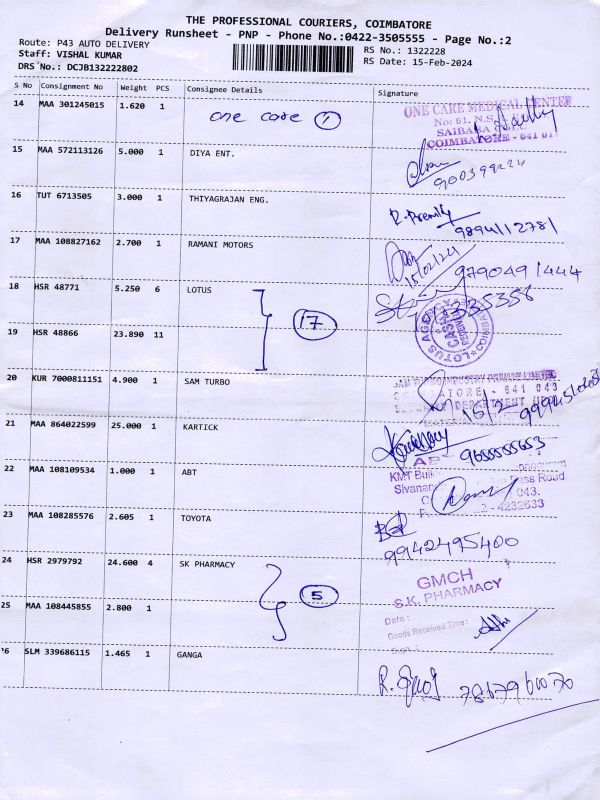 THE PROFESSIONAL COURIERS, COIMBATORE
Delivery Runsheet - PNP - Phone No.:0422-3505555 - Page No.:2
Route: P43 AUTO DELIVERY
Staff: VISHAL KUMAR
DRS No.: DCJB132222802
RS No.: 1322228
RS Date: 15-Feb-2024
S No Consignment No Weight PCS Consignee Details Signature
14 MAA 301245015 1.620 1 one care 1
ONE CARE MEDICAL CENTER
No: 61, N.S.
SAIBABA
COIMBATORE - 641 01
15 MAA 572113126 5.000 1 DIYA ENT.
16 TUT 6713505 3.000 1 THIYAGRAJAN ENG.
9894112781
17 MAA 108827162 2.700 1 RAMANI MOTORS
15/02/24 9790491444
18 HSR 48771 5.250 6 LOTUS
17
LOTUS AGENCY
CASH
19 HSR 48866 23.890 11
20 KUR 7000811151 4.900 1 SAM TURBO
SAM TURBO INDUSTRY PRIVATE LIMITED
641 043
21 MAA 864022599 25.000 1 KARTICK
9655555653
22 MAA 108109534 1.000 1 ABT
KMT Buil
Pass Road
Sivanan
043.
4232633
23 MAA 108285576 2.605 1 TOYOTA
9942495400
24 HSR 2979792 24.600 4 SK PHARMACY
5
GMCH
S.K. PHARMACY
25 MAA 108445855 2.800 1
Date :
Goods Received Time :
Sign :
26 SLM 339686115 1.465 1 GANGA